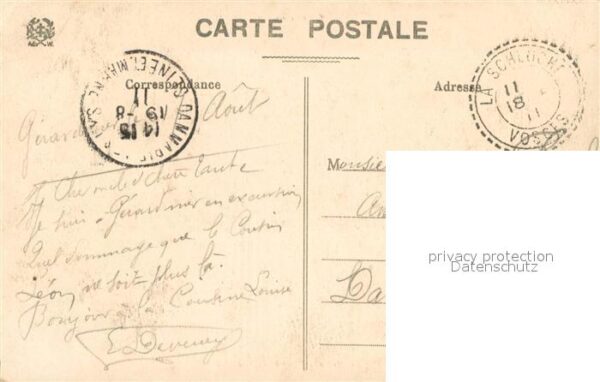 CARTE POSTALE
Correspondance
Adresse
LA SCHLUCHT
11
18
11
VOSGES
14 15
19-8
11
SEINE ET MARNE
Gérardmer Août
Cher oncle & chère tante
Je suis à Gérardmer en excursion
Quel dommage que le Cousin
Léon ne soit plus là.
Bonjour à la Cousine Louise
E.
Monsie
La
privacy protection
Datenschutz